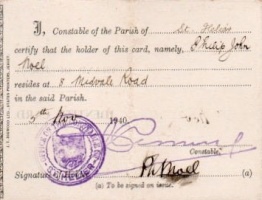 I, Constable of the Parish of St. Helier
certify that the holder of this card, namely, Philip John
Noel
resides at 8 Midvale Road
in the said Parish.
5th Nov 1940.
Constable.
P. Noel
Signature of Holder (a)
(a) To be signed on issue.